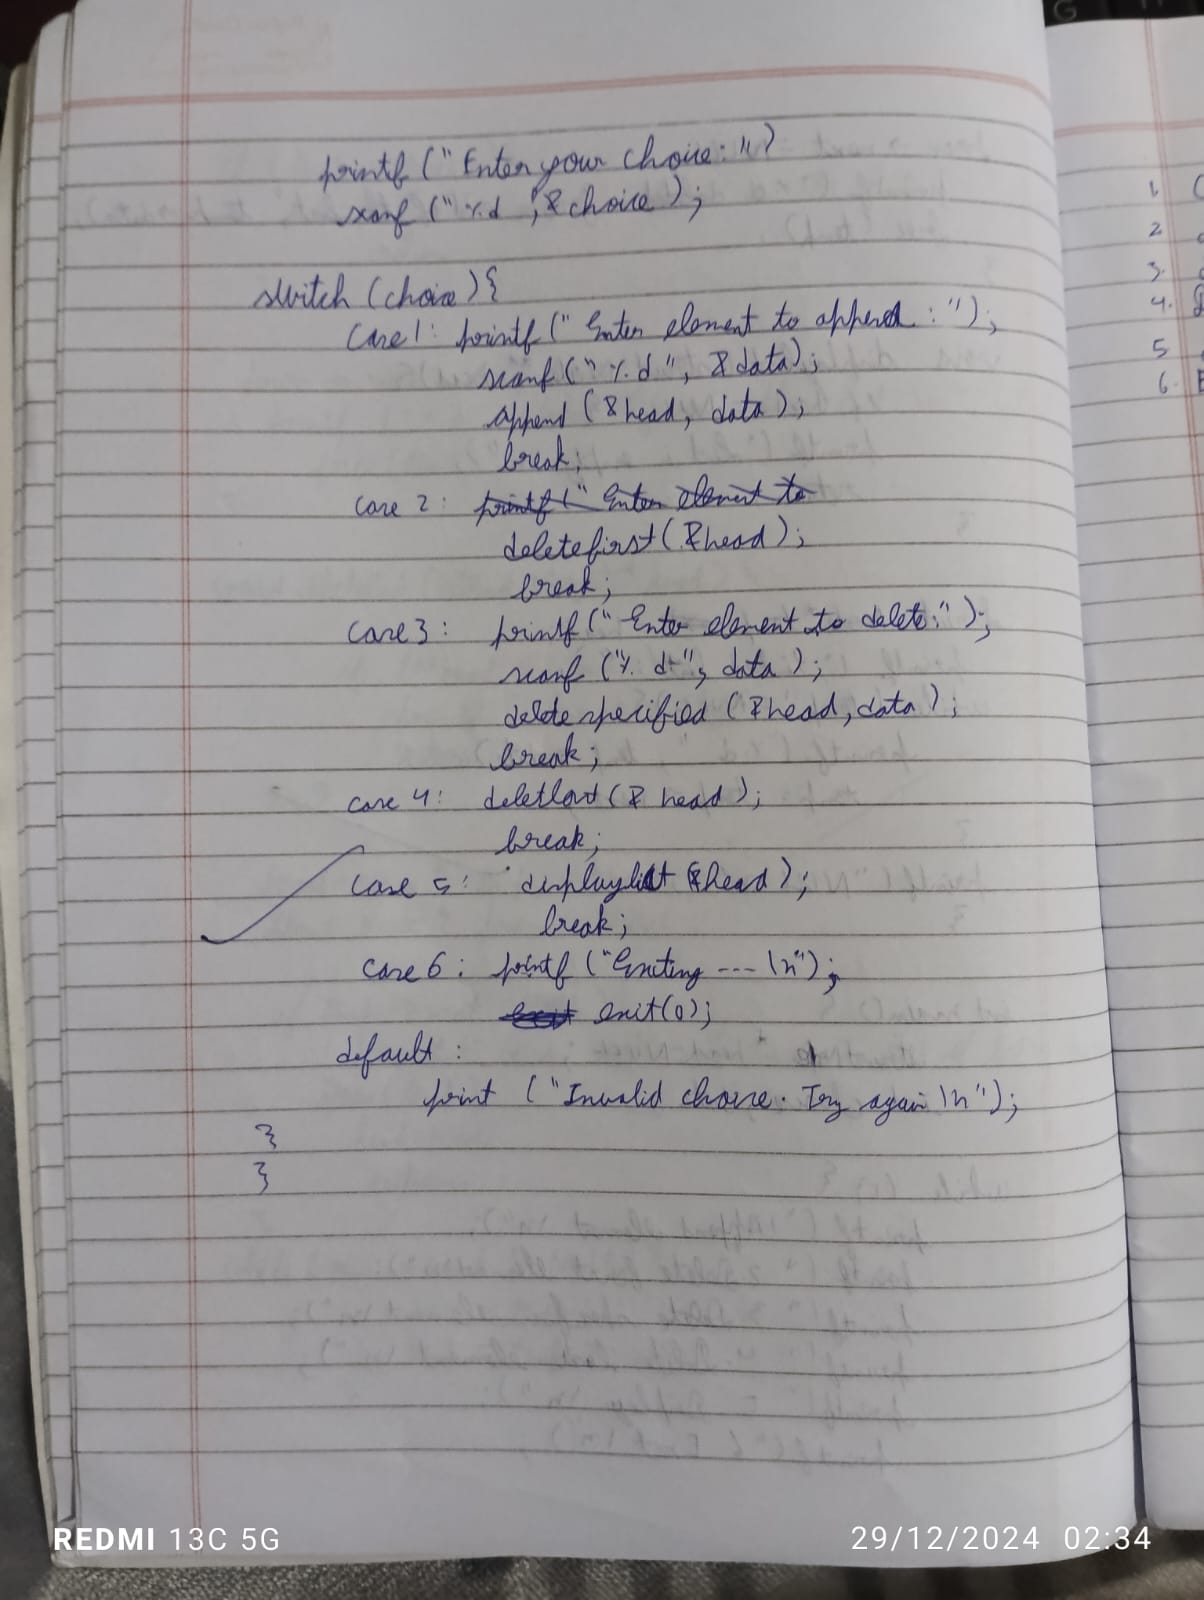 printf (" Enter your choice: ")
scanf (" %d ", &choice );
switch (choice) {
case 1: printf (" Enter element to append : ");
scanf (" %d ", &data);
append (&head, data );
break;
case 2: printf (" Enter element to
deletefirst (&head);
break;
case 3: printf (" Enter element to delete: " );
scanf ("%d", data );
delete specified (&head, data );
break;
case 4: deletlast (& head );
break;
case 5: displaylist &head );
break;
case 6: printf ("Exiting --- \n");
exit(0);
default :
print ("Invalid choice. Try again \n");
}
}
1.
2
3.
4.
5
6.
REDMI 13C 5G
29/12/2024 02:34